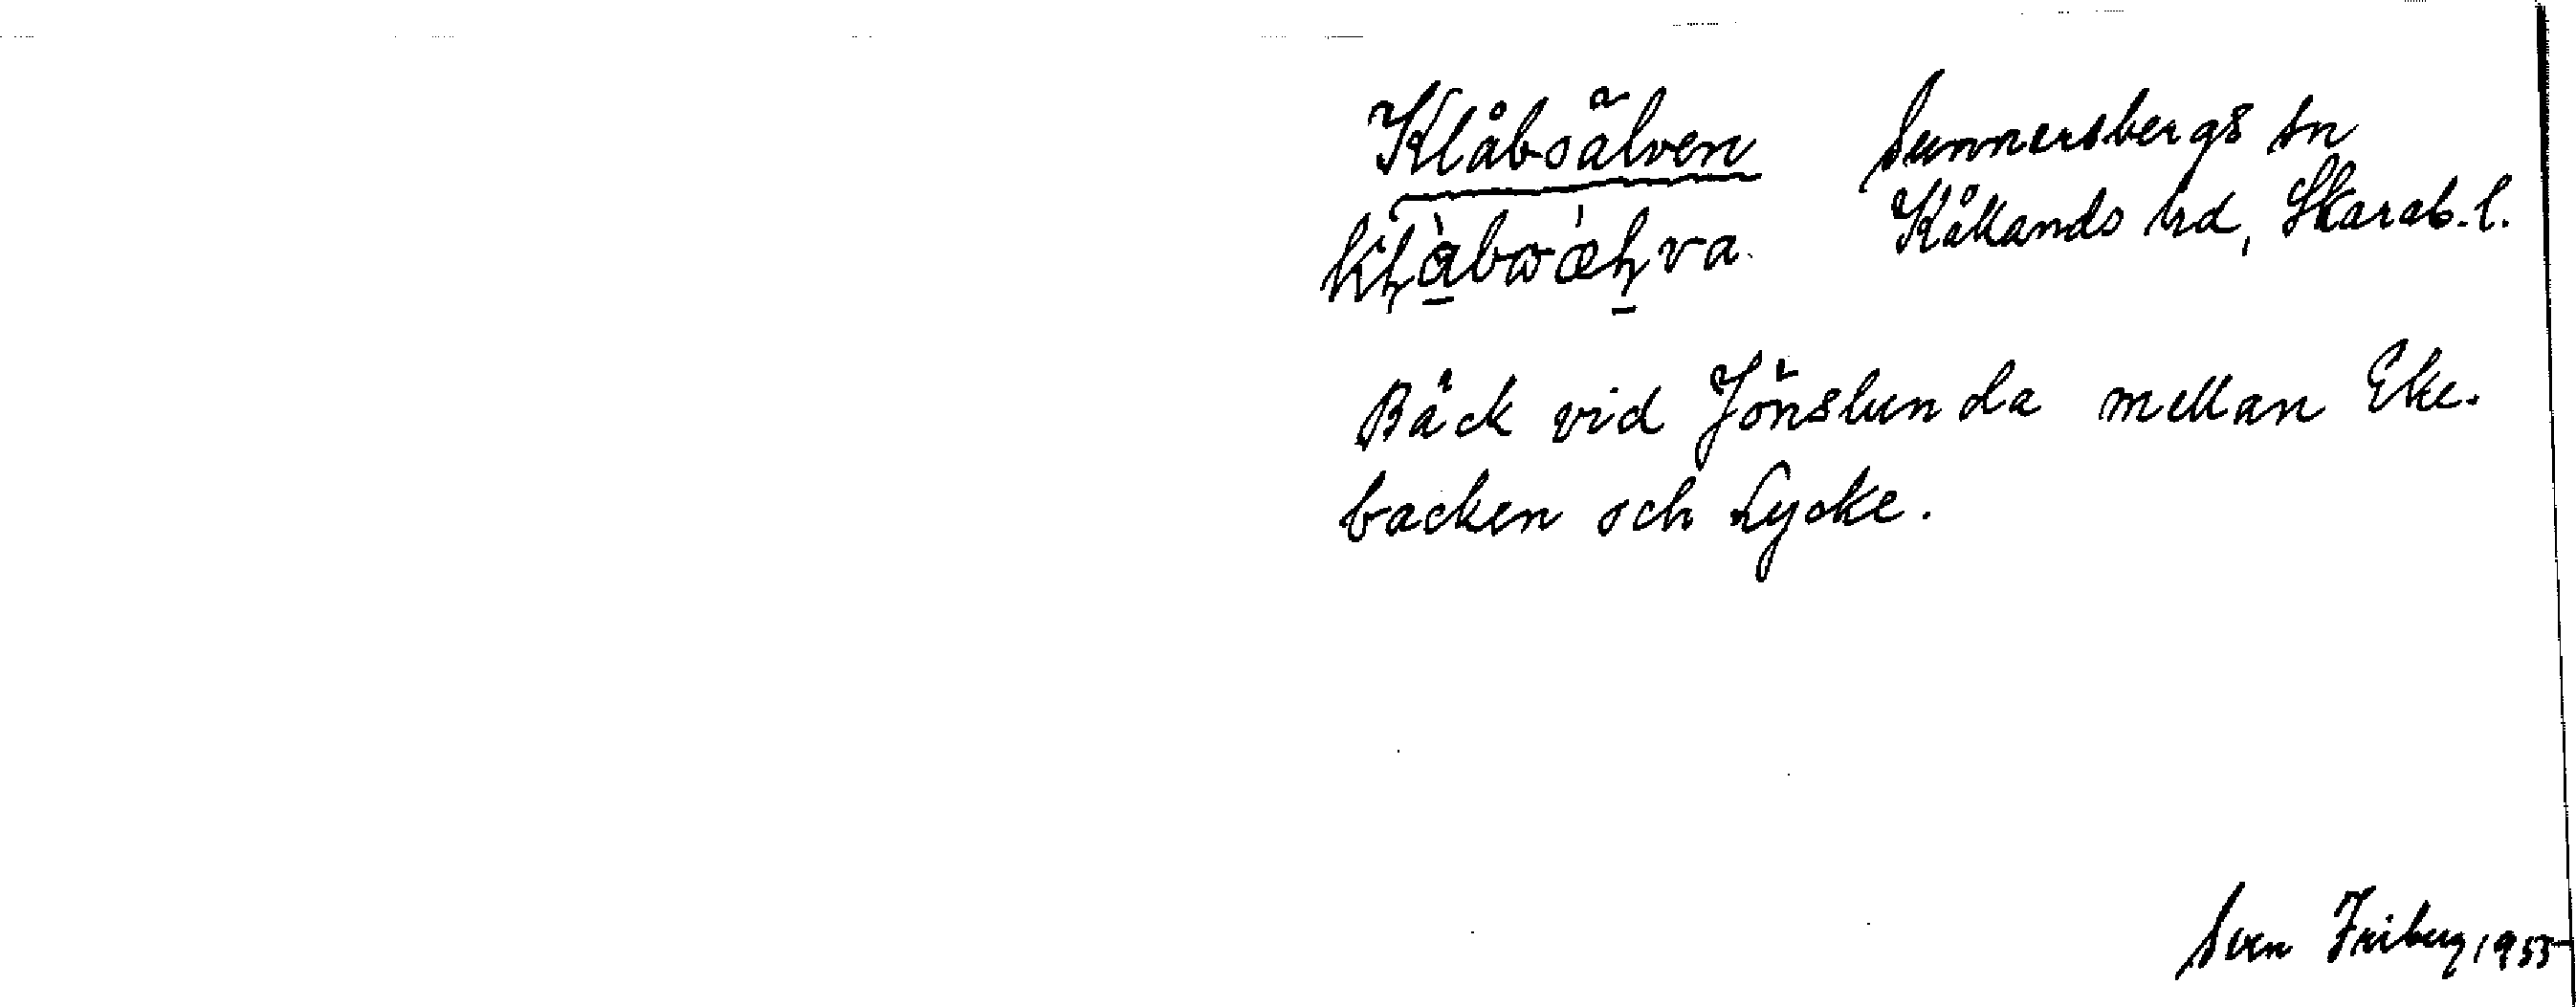 Klåbsälven Sunnersbergs sn
Kållands hd, Skarab.l.
Bäck vid Jönslunda mellan Eke-
backen och Lycke.
Sven Friberg 1955